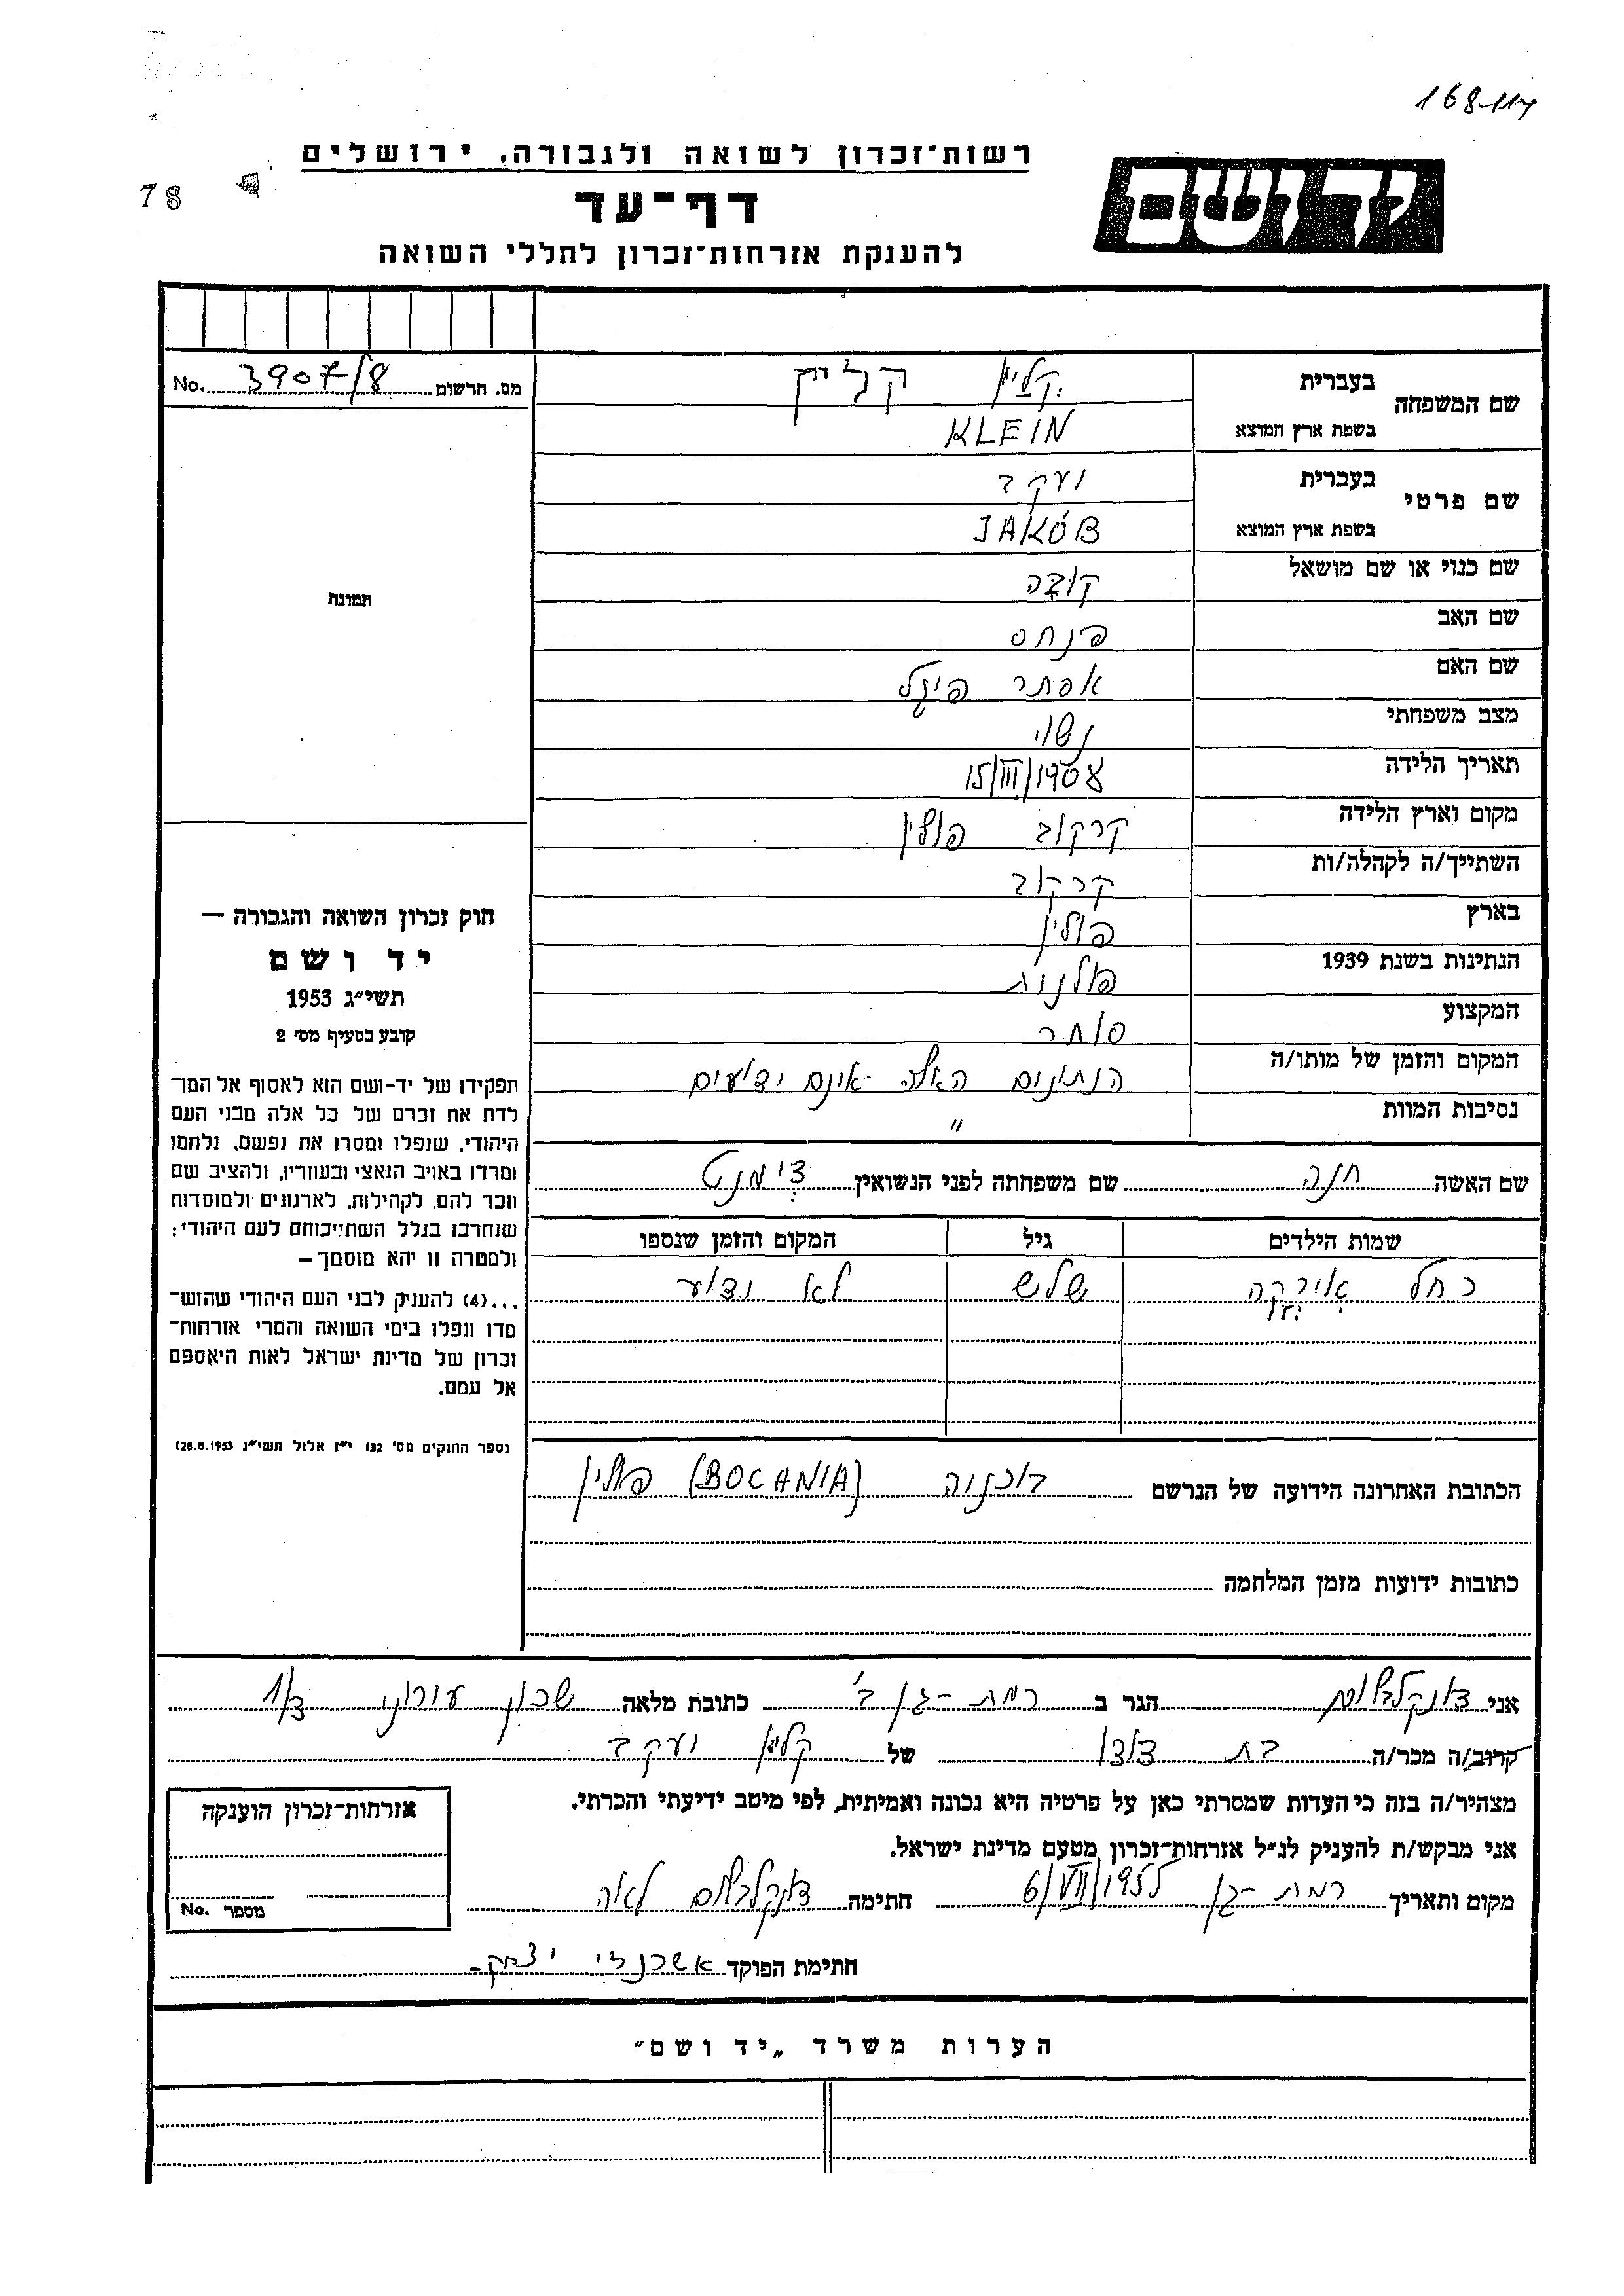 168-117
רשות־זכרון לשואה ולגבורה, ירושלים
ידושם
78
דף־עד
להענקת אזרחות־זכרון לחללי השואה
מס. הרשום 3907/8 No.
שם המשפחה בעברית קליין קליין
בשפת ארץ המוצא KLEIN
שם פרטי בעברית יעקב
בשפת ארץ המוצא JAKÓB
שם כנוי או שם מושאל קובה
שם האב פנחס
שם האם אסתר פיגל
מצב משפחתי נשוי
תאריך הלידה 15/III/1908
מקום וארץ הלידה קרקוב פולין
השתייך/ה לקהלה/ות קרקוב
בארץ פולין
הנתינות בשנת 1939 פולנית
המקצוע סוחר
המקום והזמן של מותו/ה הנתונים האלה אינם ידועים
נסיבות המוות "
תמונה
חוק זכרון השואה והגבורה —
יד ושם
תשי״ג 1953
קובע בסעיף מס׳ 2
תפקידו של יד-ושם הוא לאסוף אל המו־
לדת את זכרם של כל אלה מבני העם
היהודי, שנפלו ומסרו את נפשם, נלחמו
ומרדו באויב הנאצי ובעוזריו, ולהציב שם
וזכר להם, לקהילות, לארגונים ולמוסדות
שנחרבו בגלל השתייכותם לעם היהודי;
ולמטרה זו יהא מוסמך —
...(4) להעניק לבני העם היהודי שהוש־
מדו ונפלו בימי השואה והמרי אזרחות־
זכרון של מדינת ישראל לאות היאספם
אל עמם.
(ספר החוקים מס׳ 132 י״ז אלול תשי״ג 28.8.1953)
שם האשה חנה שם משפחתה לפני הנשואין
שמות הילדים גיל המקום והזמן שנספו
רחל שלש לא ידוע
הכתובת האחרונה הידועה של הנרשם בוכניה (BOCHNIA) פולין
כתובות ידועות מזמן המלחמה
אני הגר ב רמת-גן ב' כתובת מלאה שכון
קרוב/ה מכר/ה בת דודו של קליין יעקב
מצהיר/ה בזה כי העדות שמסרתי כאן על פרטיה היא נכונה ואמיתית, לפי מיטב ידיעתי והכרתי.
אני מבקש/ת להעניק לנ״ל אזרחות־זכרון מטעם מדינת ישראל.
מקום ותאריך רמת-גן 6/VII/1955 חתימה לאה
חתימת הפוקד יצחק
אזרחות־זכרון הוענקה
מספר No.
הערות משרד „יד ושם״